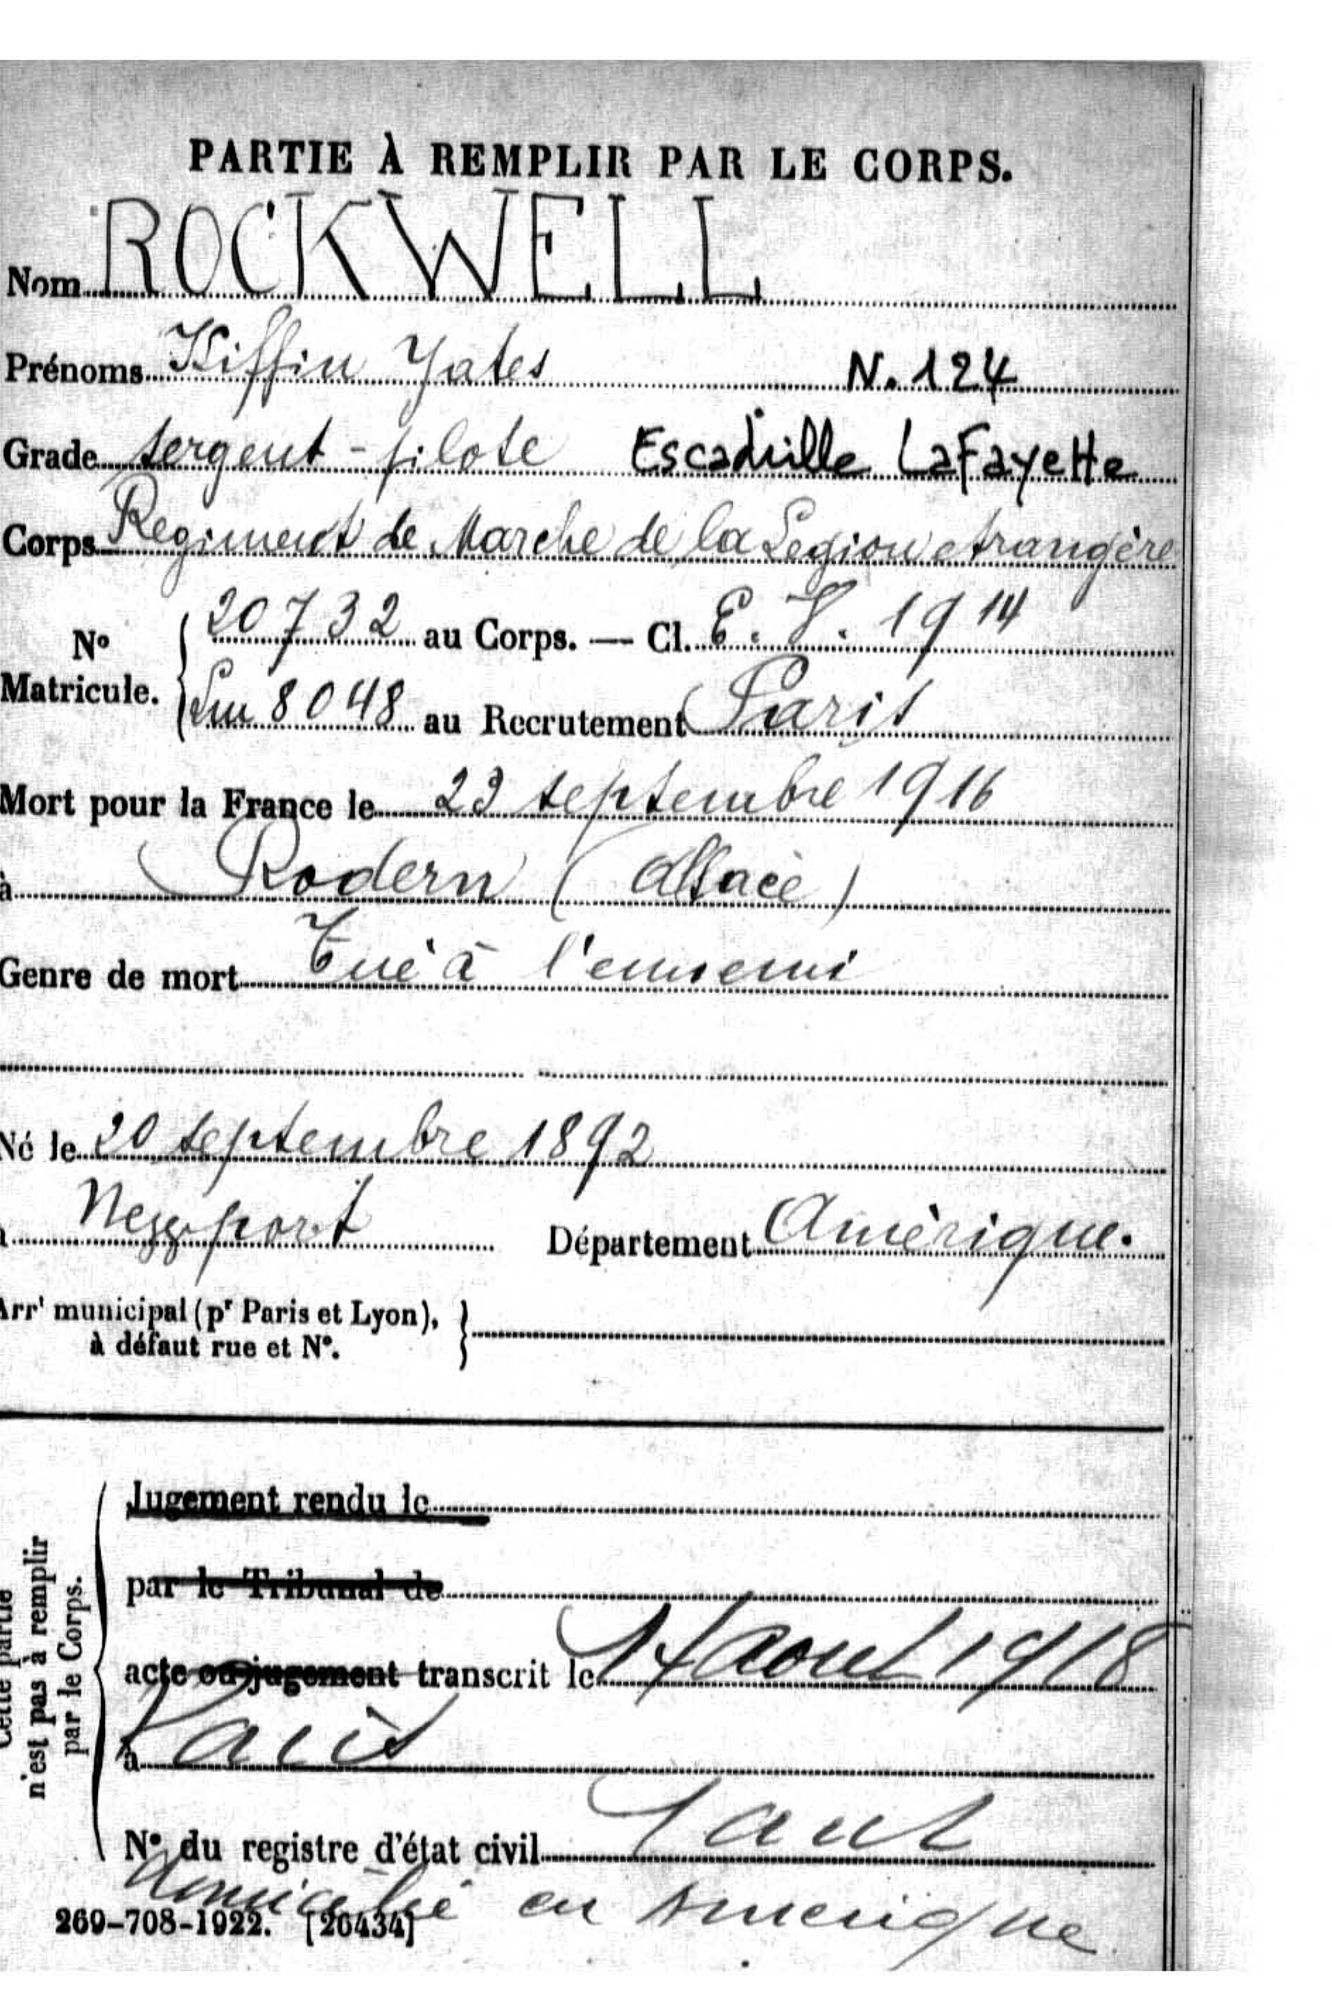 PARTIE À REMPLIR PAR LE CORPS.
Nom ROCKWELL
Prénoms Kiffin Yates N. 124
Grade sergent-pilote Escadrille LaFayette
Corps Regiment de Marche de la Légion etrangère
N° Matricule. 20732 au Corps. — Cl. E. V. 1914
Lm 8048 au Recrutement Paris
Mort pour la France le 23 septembre 1916
à Rodern (Alsace)
Genre de mort Tué à l'ennemi
Né le 20 septembre 1892
Newport Département Amérique.
Arrt municipal (pr Paris et Lyon),
à défaut rue et N°.
Cette partie
n'est pas à remplir
par le Corps.
Jugement rendu le
par le Tribunal de
acte ou jugement transcrit le août 1918
à Paris
N° du registre d'état civil
domicilié en Amerique
269-708-1922. [26434]